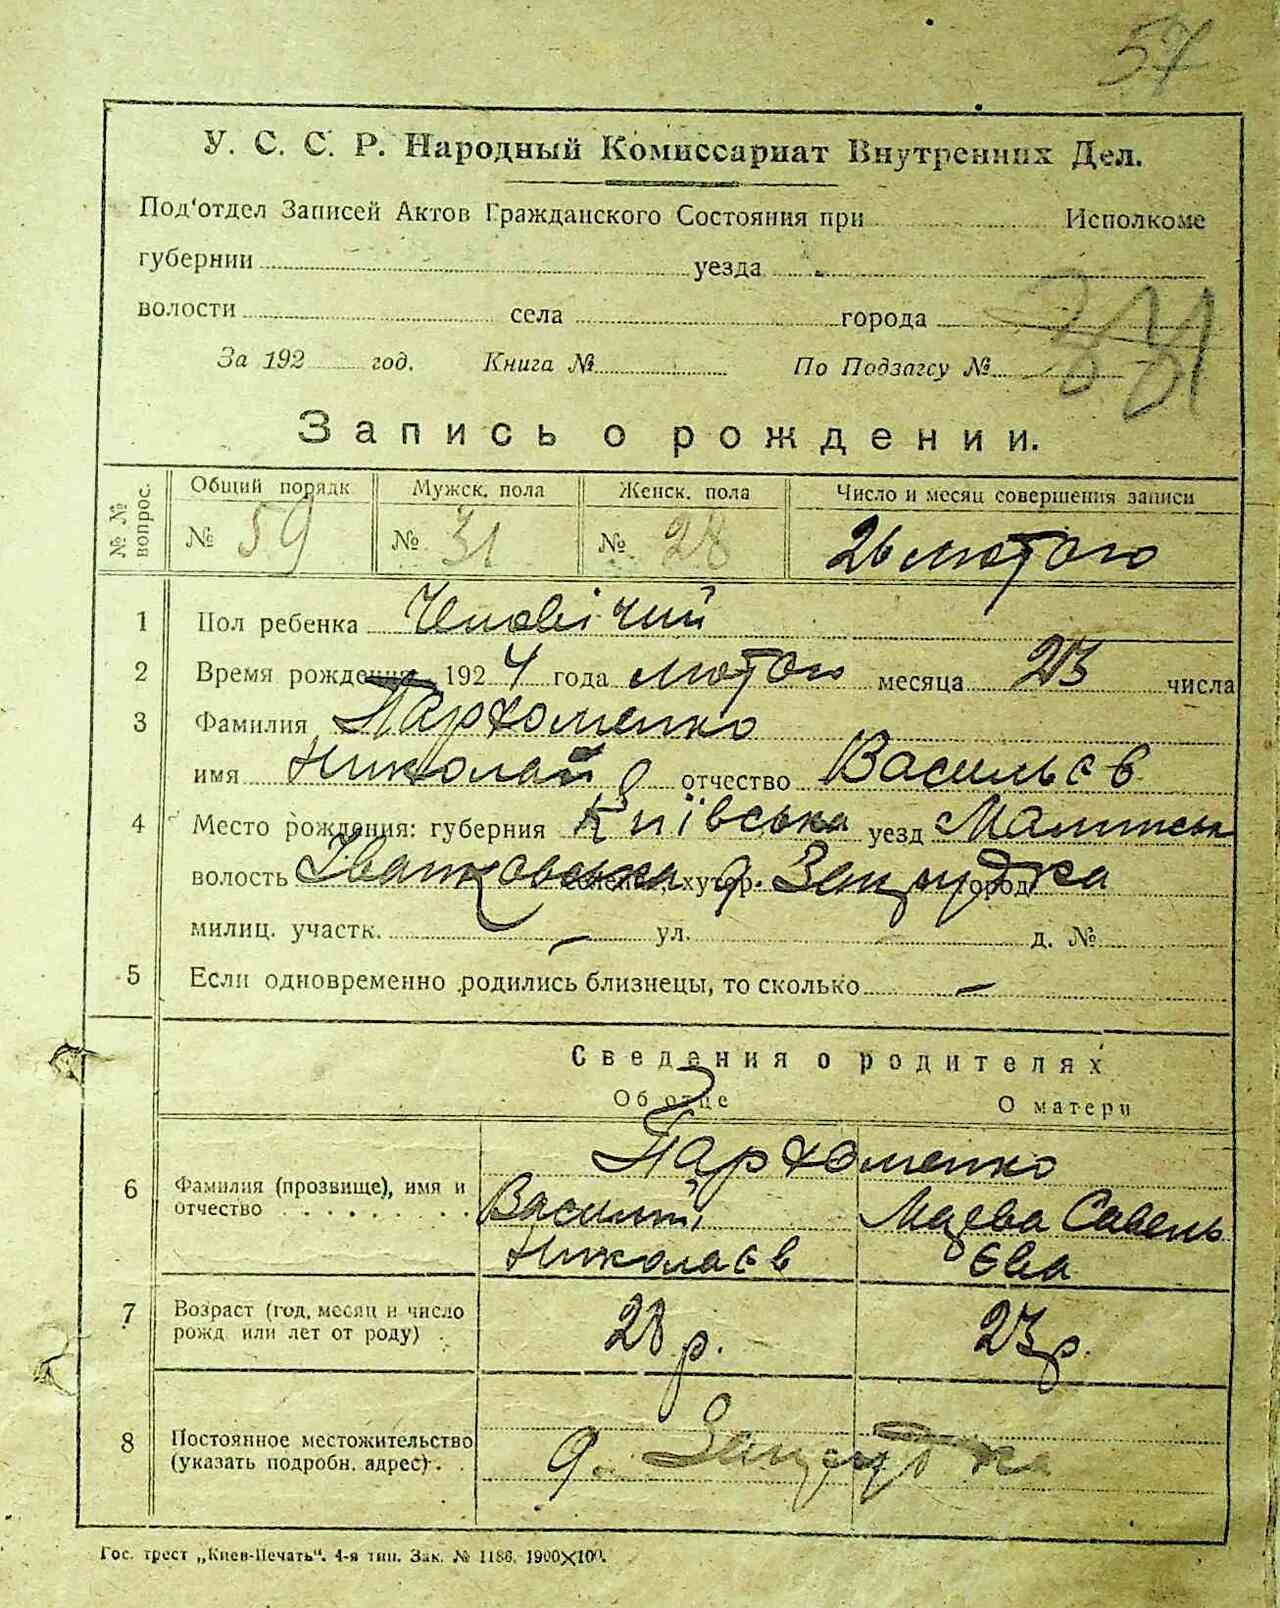 57
У. С. С. Р. Народный Комиссариат Внутренних Дел.
Под'отдел Записей Актов Гражданского Состояния при Исполкоме
губернии уезда
волости села города
За 192 год. Книга № По Подзагсу №
Запись о рождении.
№ № вопрос. Общий порядк Мужск. пола Женск. пола Число и месяц совершения записи
№ 59 № 31 № 28 26 лютого
1 Пол ребенка Чоловічий
2 Время рождения 1924 года лютого месяца 23 числа
3 Фамилия Пархоменко
имя Николай отчество Васильєв
4 Место рождения: губерния Київська уезд Малинськ
волость Іванковська хутор город
милиц. участк. – ул. д. №
5 Если одновременно родились близнецы, то сколько –
Сведения о родителях
Об отце О матери
Пархоменко
6 Фамилия (прозвище), имя и отчество Василий Савень
Николаєв Єва
7 Возраст (год, месяц и число рожд или лет от роду) 28 р. 23 р.
8 Постоянное местожительство (указать подробн. адрес)
Гос. трест „Киев-Печать". 4-я тип. Зак. № 1186. 1900×100.